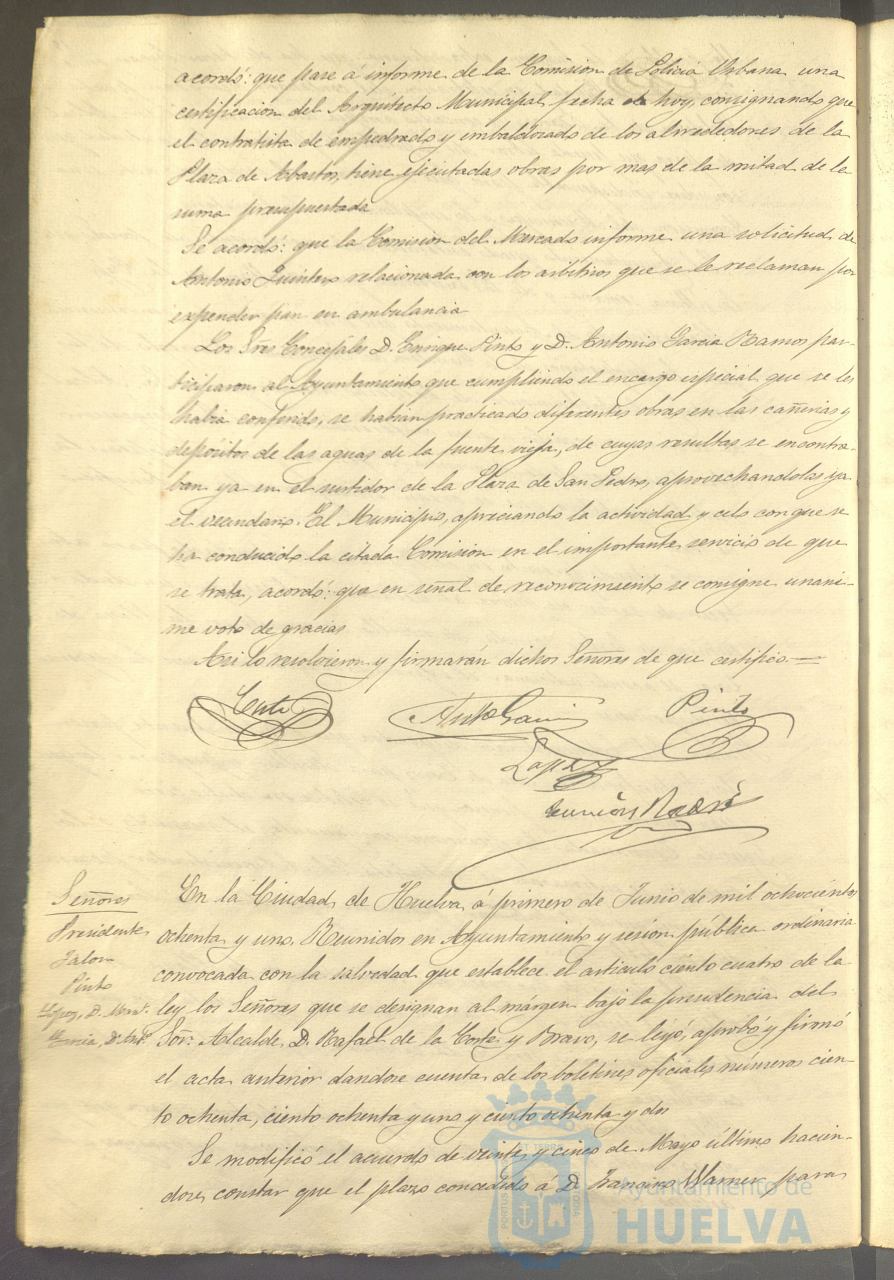 acordó: que pase á informe de la Comision de Policia Urbana una
certificacion del Arquitecto Municipal fecha de hoy, consignando que
el contratista de empedrado y embaldosado de los alrrededores de la
Plaza de Abastos, tiene ejecutadas obras por mas de la mitad de la
suma presupuestada
Se acordó: que la Comision del Mercado informe una solicitud de
Antonio Quintero relacionada con los arbitrios que se le reclaman por
expender pan en ambulancia
Los Sres Concejales D. Enrique Pinto y D. Antonio Garcia Ramos par-
ticiparon al Ayuntamiento que cumpliendo el encargo especial que se les
habia conferido, se habian practicado diferentes obras en las cañerias y
depósitos de las aguas de la fuente vieja, de cuyas resultas se encontra-
ban ya en el surtidor de la Plaza de San Pedro, aprovechandolas ya
el vecindario. El Municipio, apreciando la actividad y celo con que se
ha conducido la citada Comision en el importante servicio de que
se trata, acordó: que en señal de reconocimiento se consigne unani-
me voto de gracias
Asi lo resolvieron y firmarán dichos Señores de que certifico.=
Corte
Anto Garcia
Pinto
Lopez
En la Ciudad de Huelva á primero de Junio de mil ochocientos
ochenta y uno, Reunidos en Ayuntamiento y sesion pública ordinaria
convocada con la salvedad que establece el articulo ciento cuatro de la
ley los Señores que se designan al márgen bajo la presidencia del
Sor. Alcalde D. Rafael de la Corte y Bravo, se leyó, aprobó y firmó
el acta anterior dandose cuenta de los boletines oficiales números cien-
to ochenta, ciento ochenta y uno y ciento ochenta y dos
Se modificó el acuerdo de veinte y cinco de Mayo último hacien-
dose constar que el plazo concedido á D. Francisco Warner para
Señores
Presidente
Jalon
Pinto
Lopez, D. Manl.
Garcia, D. Anto.
Ayuntamiento de
HUELVA